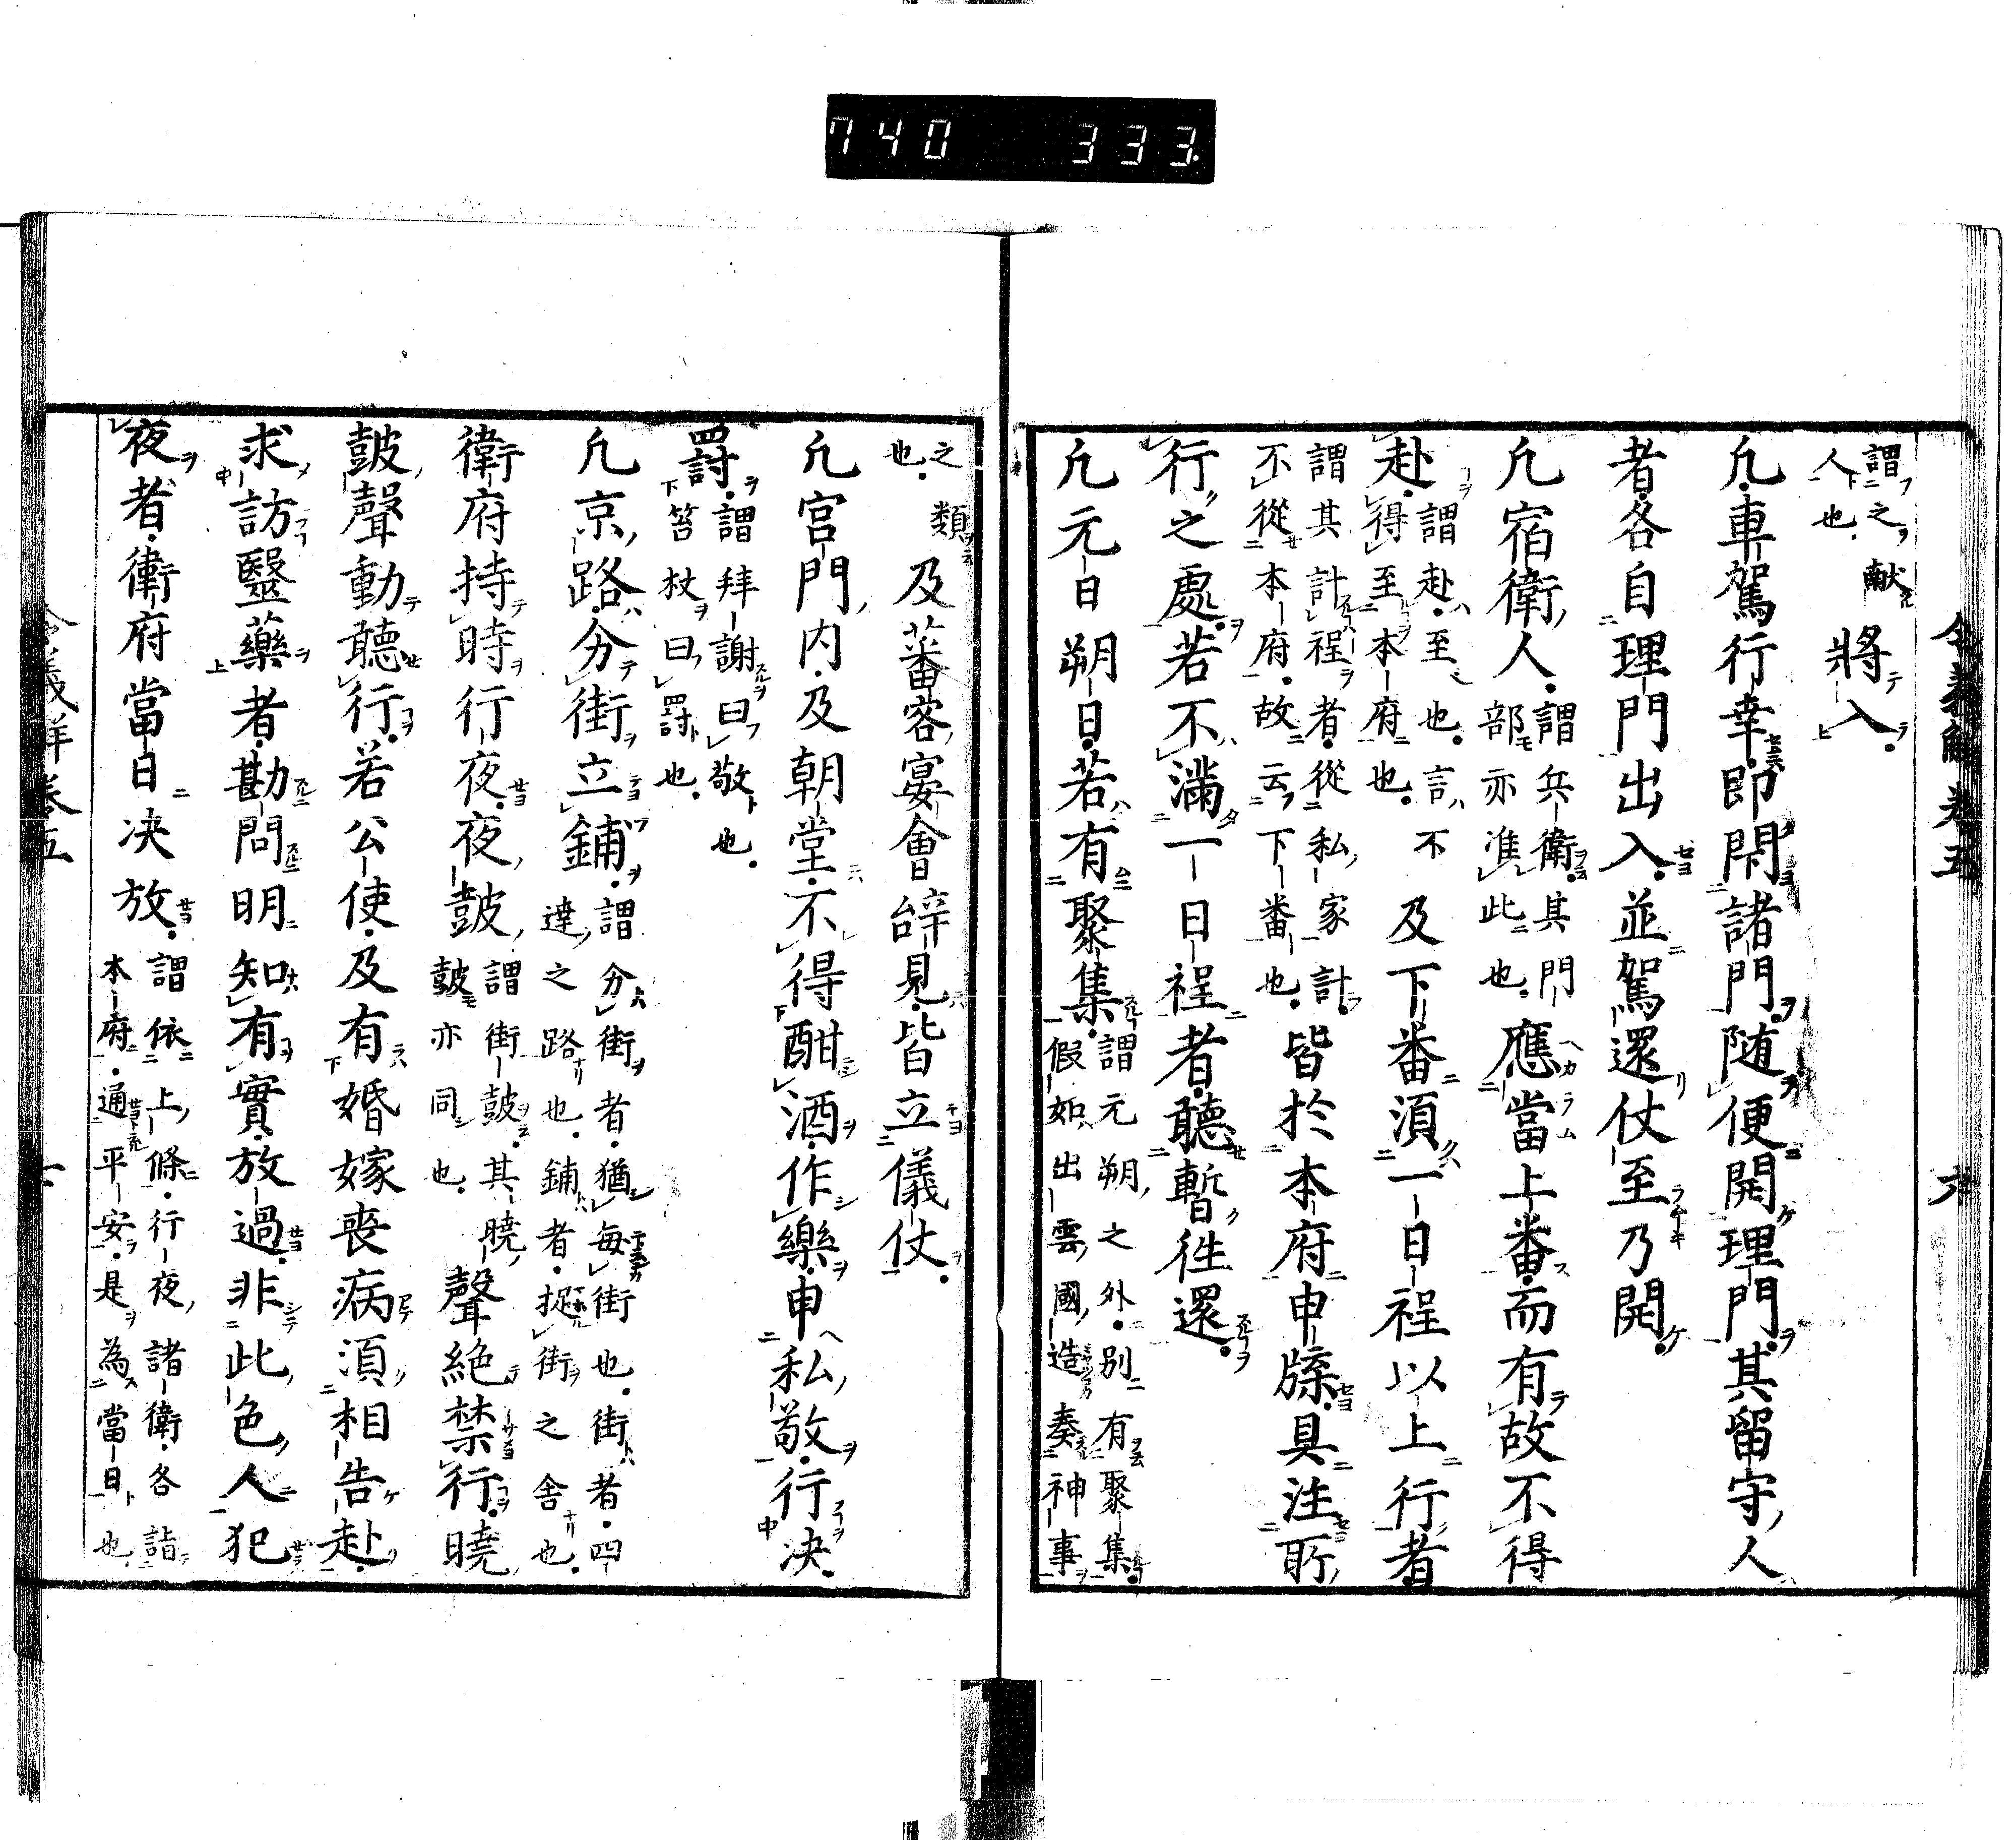 740 333
令義解卷五 六
謂之獻
人也
將入
凢車駕行幸即閇諸門随便開理門其留守人
者各自理門出入並駕還仗至乃開
凢宿衛人
謂兵衛其門
部亦准此也
應當上番而有故不得
赴
謂赴至也言不
得至本府也
及下番湏一日程以上行者
謂其計程者從私家計
不從本府故云下番也
皆於本府申牒具注所
行之處若不滿一日程者聽暫徃還
凢元日朔日若有聚集
謂元朔之外別有聚集
假如出雲國造奏神事
之類
也
及蕃客宴會辞見皆立儀仗
凢宮門内及朝堂不得酣酒作樂申私敬行决
罸
謂拜謝曰敬也
笞杖曰罸也
凢京路分街立鋪
謂分街者猶毎街也街者四
達之路也鋪者捉街之舍也
衛府持時行夜夜鼓
謂街鼓其曉
鼓亦同也
聲絶禁行曉
鼓聲動聽行若公使及有婚嫁喪病湏相告赴
求訪醫藥者勘問明知有實放過非此色人犯
夜者衛府當日决放
謂依上條行夜諸衛各詣
本府通平安是為當日也
令義解卷五